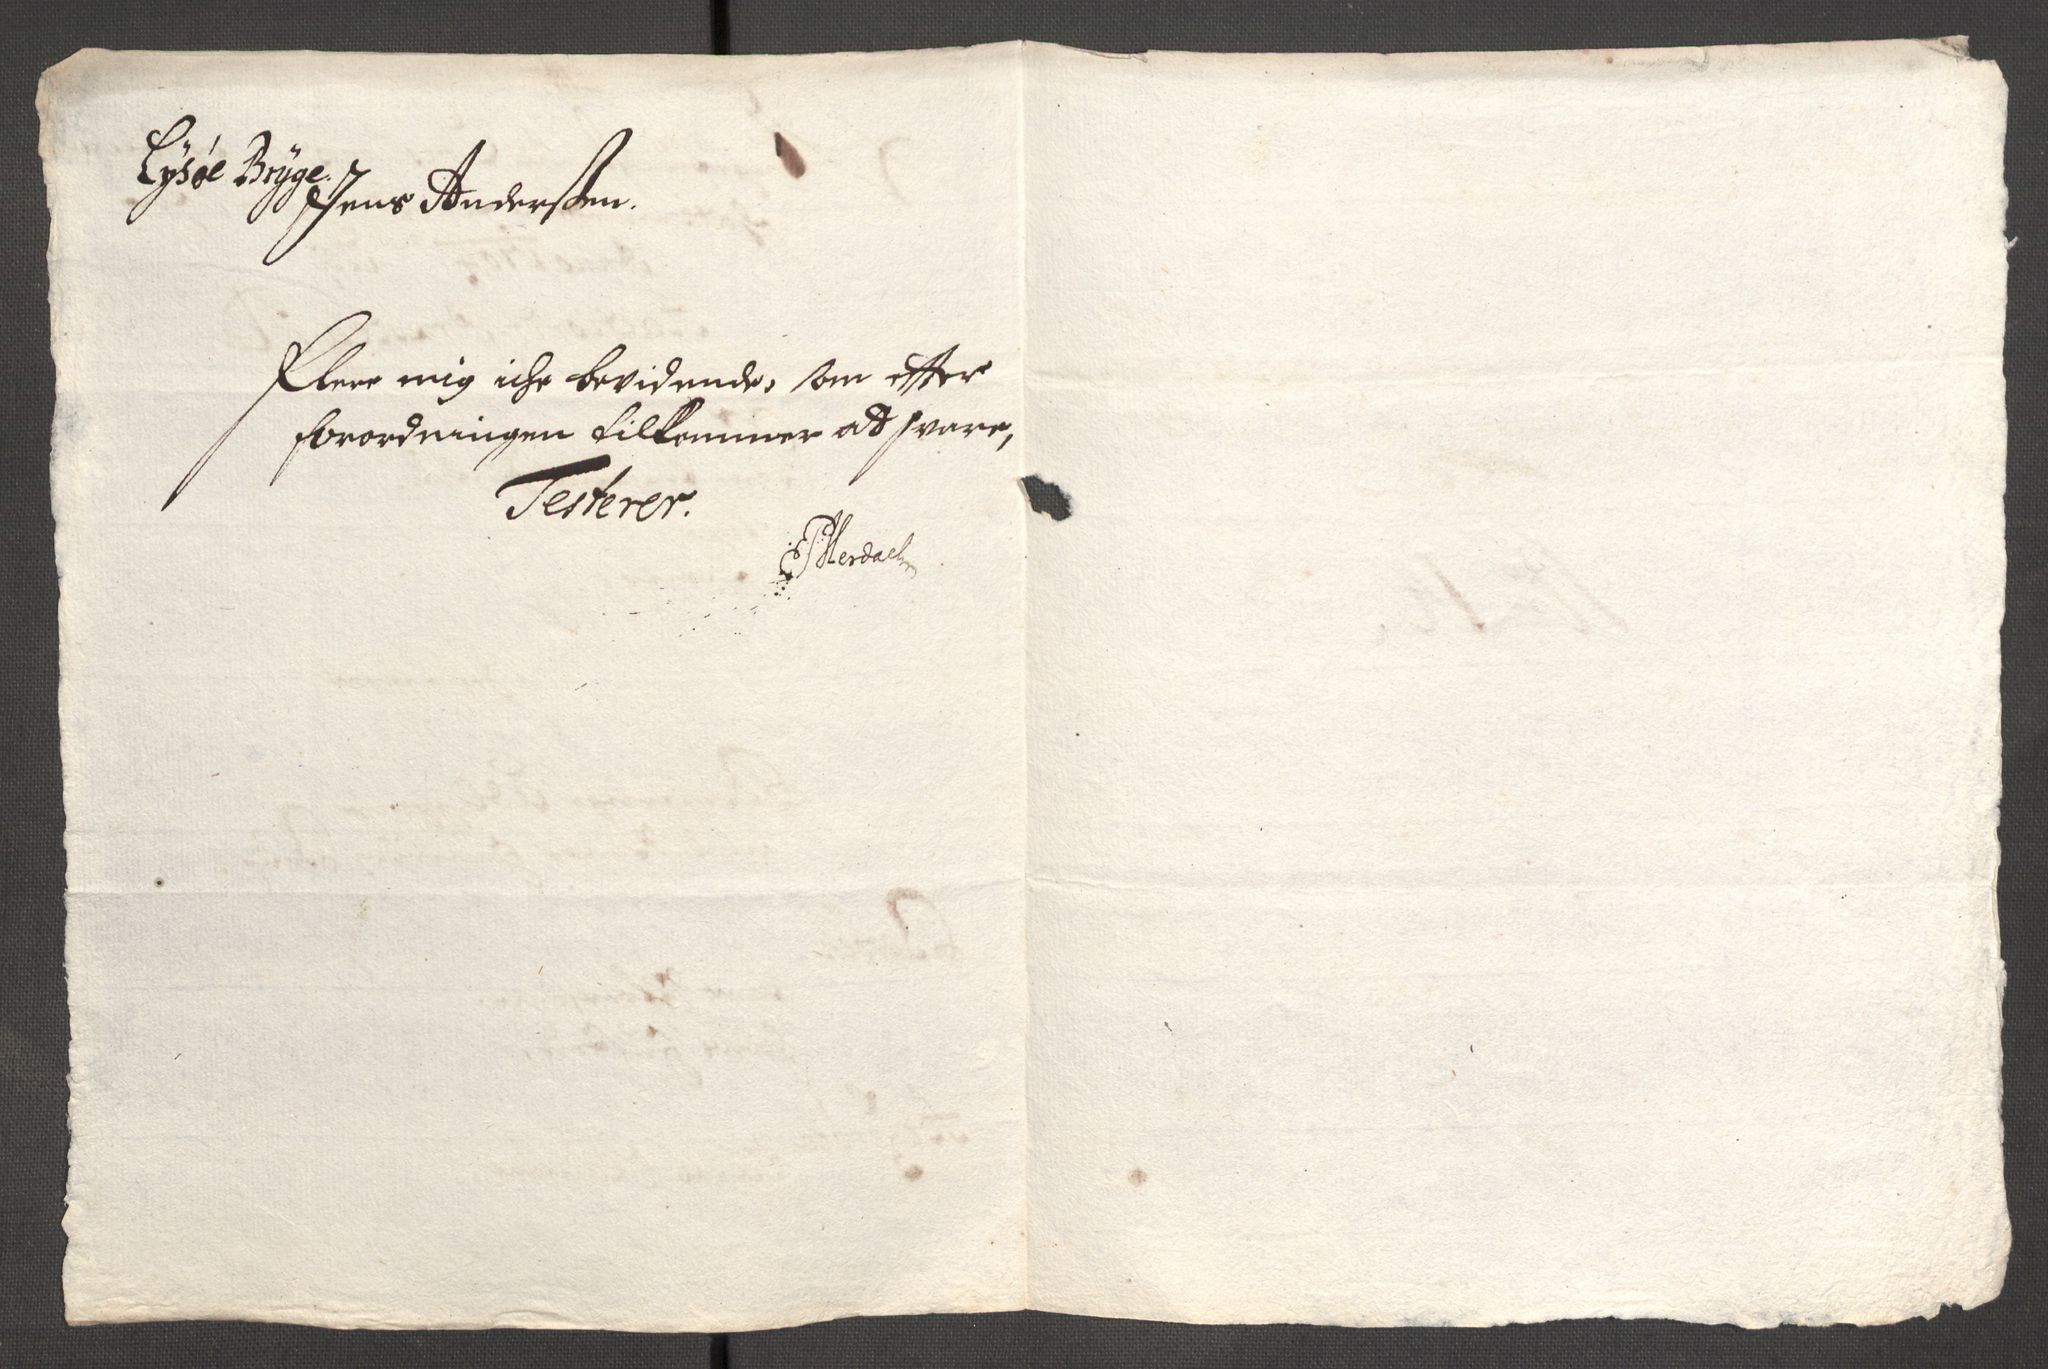 Lysøe Bryge.
Jens Anderßen.
Flere mig iche bevidende, som efter
forordningen tilkommer at svare,
Testerer.